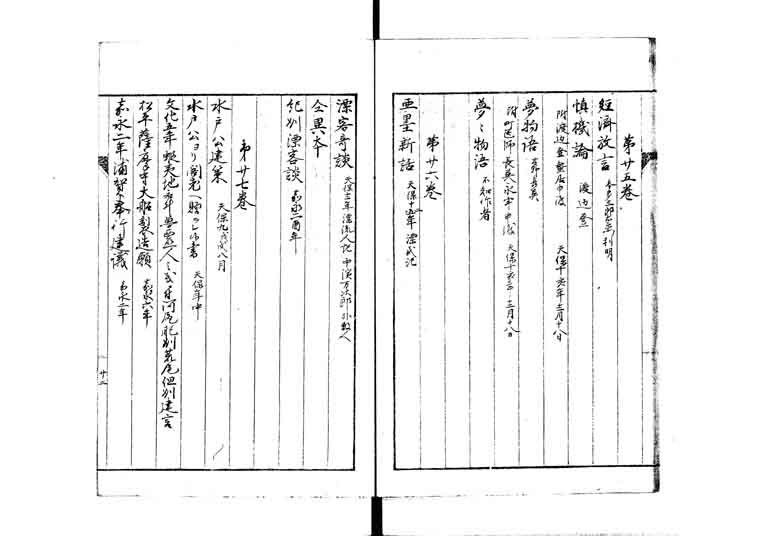 第廿五巻
経済放言 本多三郎右衛門利明
慎機論 渡辺登
附渡辺登蟄居申渡 天保十亥年十二月十八日
夢物語 高野長英
附町医師長英永牢申渡 天保十亥年十二月十八日
夢々物語 不知作者
第廿六巻
亜墨新話 天保十五年 漂民記
漂客奇談 漂流人記 中濱万次郎 外数人
仝異本
紀州漂客談 嘉永二酉年
第廿七巻
水戸公建策 天保九戌年八月
水戸公ヨリ閣老ヘ贈ラレシ書 天保年中
文化五年蝦夷地
松平薩摩守大船製造願 嘉永六年
嘉永二年浦賀奉行建議 嘉永二年
廿二